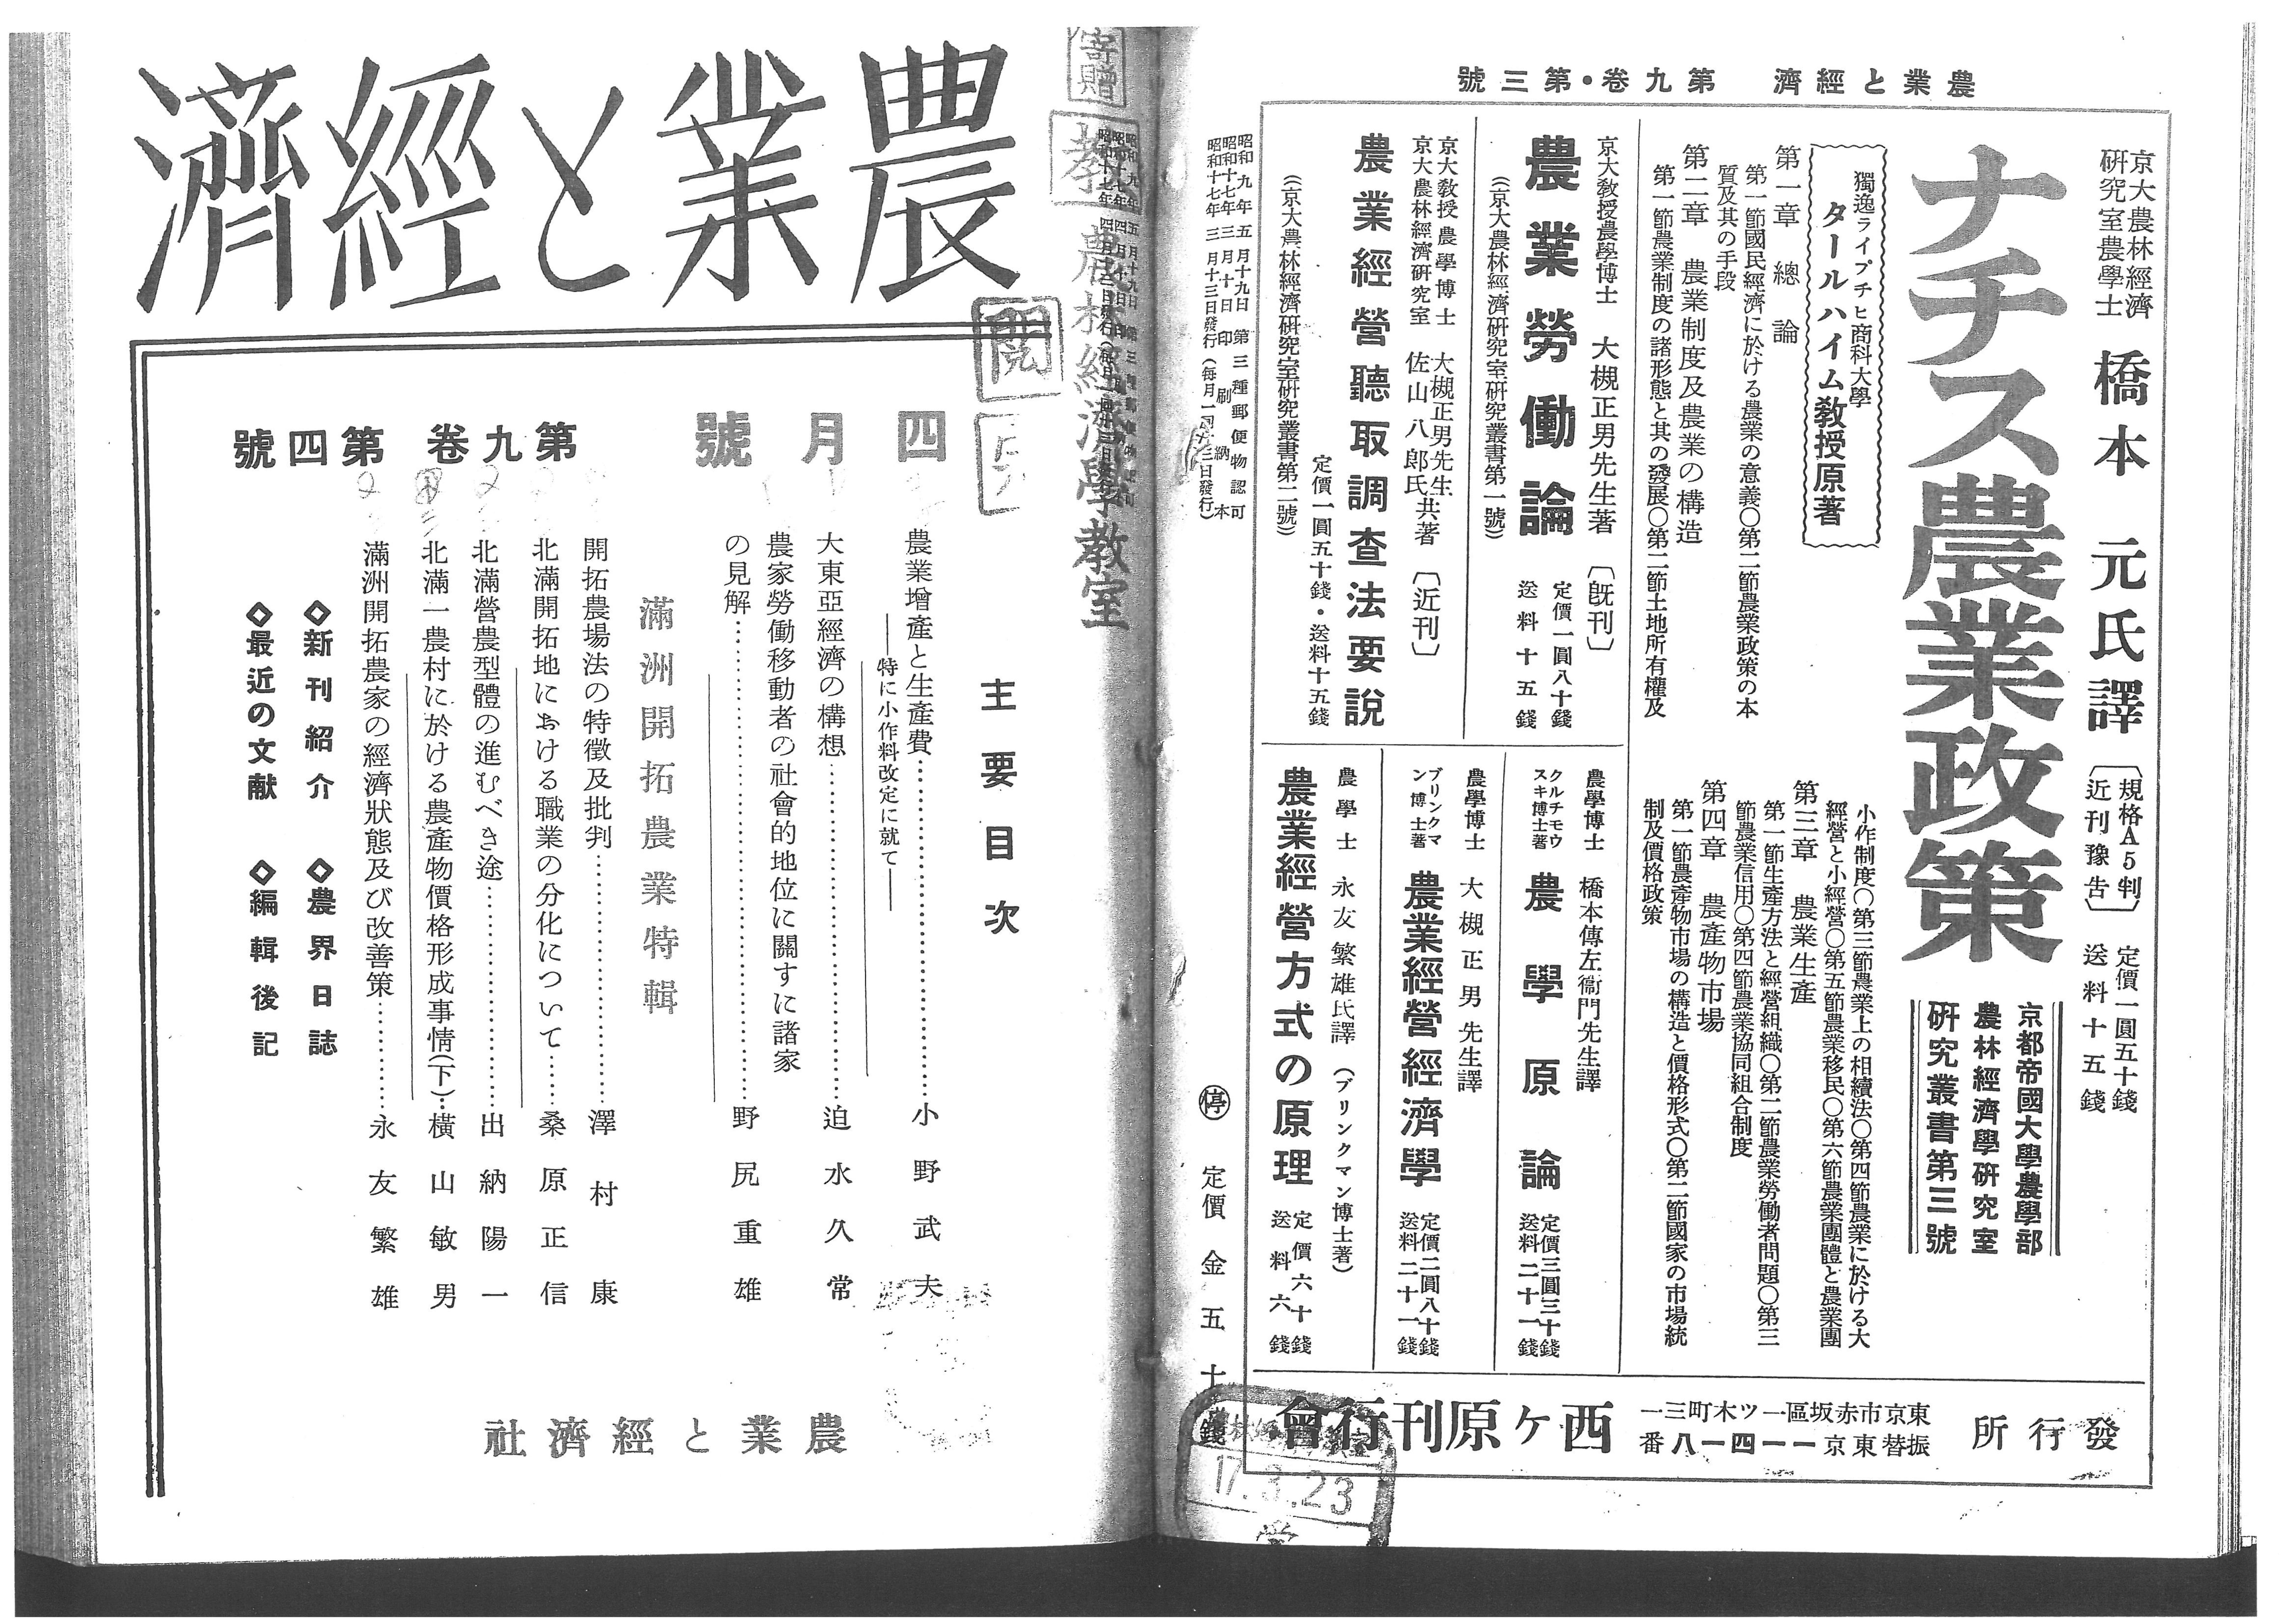 農業と經濟 第九卷・第三號
京大農林經濟
硏究室農學士
橋本元氏譯
〔規格A5判
近刊豫吿〕
定價一圓五十錢
送料十五錢
ナチス農業政策
京都帝國大學農學部
農林經濟學硏究室
硏究叢書第三號
獨逸ライプチヒ商科大學
タールハイム敎授原著
第一章 總論
第一節國民經濟に於ける農業の意義〇第二節農業政策の本
質及其の手段
第二章 農業制度及農業の構造
第一節農業制度の諸形態と其の發展〇第二節土地所有權及
小作制度〇第三節農業上の相續法〇第四節農業に於ける大
經營と小經營〇第五節農業移民〇第六節農業團體と農業團
第三章 農業生產
第一節生產方法と經營組織〇第二節農業勞働者問題〇第三
節農業信用〇第四節農業協同組合制度
第四章 農產物市場
第一節農產物市場の構造と價格形式〇第二節國家の市場統
制及價格政策
京大敎授農學博士 大槻正男先生著 〔旣刊〕
農業勞働論
定價一圓八十錢
送料十五錢
(京大農林經濟硏究室硏究叢書第一號)
京大敎授農學博士 大槻正男先生
京大農林經濟硏究室 佐山八郞氏
共著 〔近刊〕
農業經營聽取調查法要說
定價一圓五十錢・送料十五錢
(京大農林經濟硏究室硏究叢書第二號)
農學博士 橋本傳左衞門先生譯
クルチモウ
スキ博士著
農學原論
定價三圓三十錢
送料二十一錢
農學博士 大槻正男先生譯
ブリンクマ
ン博士著
農業經營經濟學
定價二圓八十錢
送料二十一錢
農學士 永友繁雄氏譯 (ブリンクマン博士著)
農業經營方式の原理
定價六十錢
送料六錢
發行所
東京市赤坂區一ツ木町三一
振替東京一一四一八番
西ケ原刊行會
昭和九年五月十九日第三種郵便物認可
昭和十七年三月十日印刷納本
昭和十七年三月十三日發行(每月一回十三日發行)
停 定價金五十錢
17.3.23
寄贈
農林經濟學敎室
閱
農業と經濟
四月號
第九卷 第四號
主要目次
農業增產と生產費…………小野武夫
――特に小作料改定に就て――
大東亞經濟の構想…………迫水久常
農家勞働移動者の社會的地位に關すに諸家
の見解…………野尻重雄
滿洲開拓農業特輯
開拓農場法の特徵及批判…………澤村康
北滿開拓地における職業の分化について……桑原正信
北滿營農型體の進むべき途…………出納陽一
北滿一農村に於ける農產物價格形成事情(下)…橫山敏男
滿洲開拓農家の經濟狀態及び改善策…………永友繁雄
◇新刊紹介 ◇農界日誌
◇最近の文献 ◇編輯後記
農業と經濟社